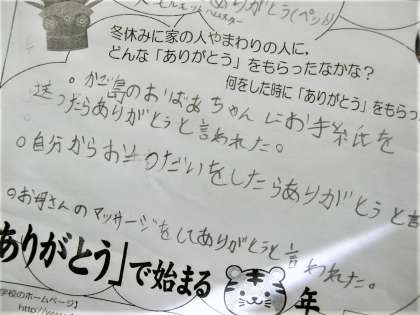 ありがとう(ペット
冬休みに家の人やまわりの人に、
どんな「ありがとう」をもらったなかな?
何をした時に「ありがとう」をもらっ
○かご島のおばあちゃんにお手紙を
送ったらありがとうと言われた。
○自分からお手つだいをしたらありがとうと言
○お母さんのマッサージをしてありがとうと言われた。
ありがとう」で始まる
年
学校のホームページ】
http://www.